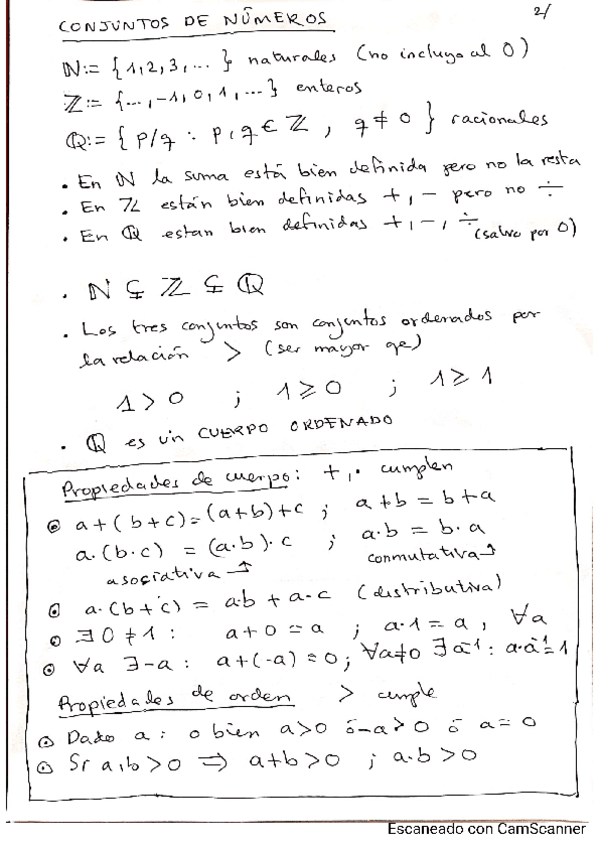 CONJUNTOS DE NÚMEROS
2/
ℕ:= {1,2,3,...} naturales (no incluyo al 0)
ℤ:= {...,-1,0,1,...} enteros
ℚ:= {p/q : p,q ∈ ℤ, q ≠ 0} racionales
• En ℕ la suma está bien definida pero no la resta
• En ℤ están bien definidas +, - pero no ÷
• En ℚ estan bien definidas +, -, ÷ (salvo por 0)
• ℕ ⊊ ℤ ⊊ ℚ
• Los tres conjuntos son conjuntos ordenados por
la relación > (ser mayor qe)
1 > 0 ; 1 ≥ 0 ; 1 ≥ 1
• ℚ es un CUERPO ORDENADO
Propiedades de cuerpo: +, · cumplen
⊙ a+(b+c)=(a+b)+c ; a+b = b+a
a·(b·c) = (a·b)·c ; a·b = b·a
asociativa ↑ conmutativa ↑
⊙ a·(b+c) = a·b + a·c (distributiva)
⊙ ∃ 0 ≠ 1 : a+0 = a ; a·1 = a, ∀a
⊙ ∀a ∃-a : a+(-a) = 0; ∀a≠0 ∃ a⁻¹ : a·a⁻¹=1
Propiedades de orden > cumple
⊙ Dado a : o bien a>0 ó -a>0 ó a=0
⊙ Si a,b>0 ⇒ a+b>0 ; a·b>0
Escaneado con CamScanner